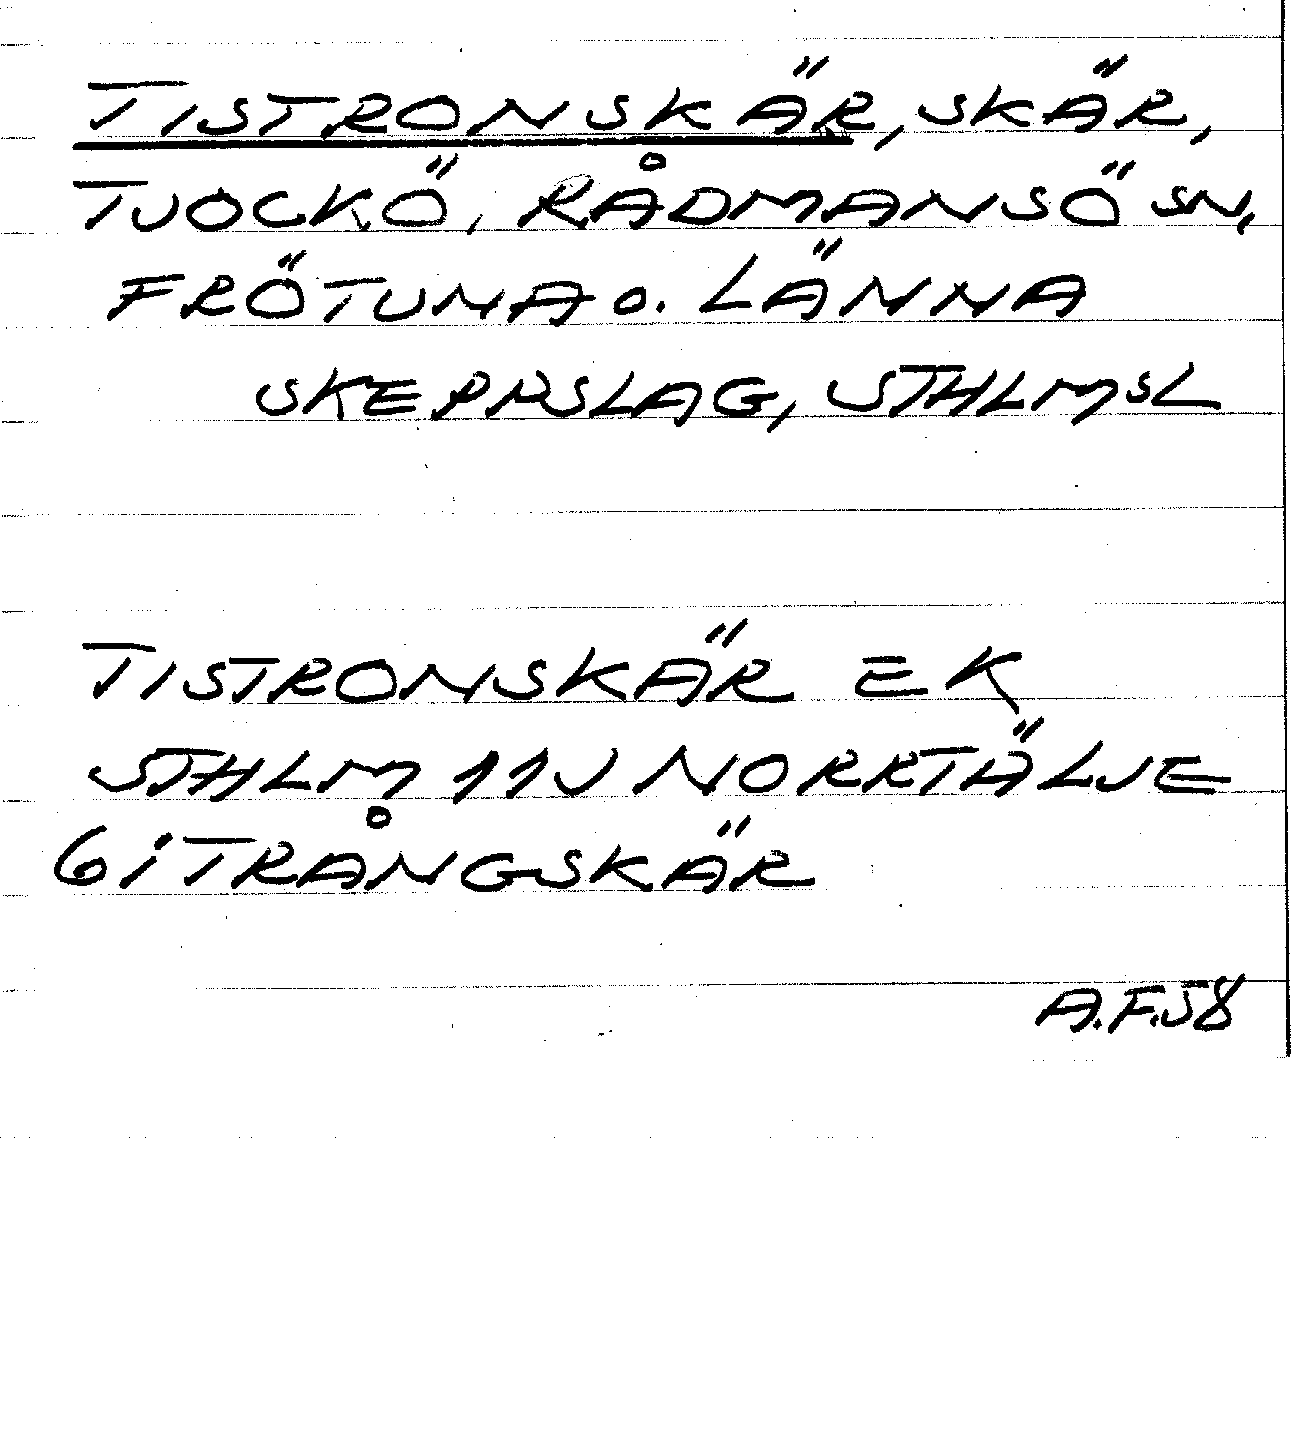 TISTRONSKÄR, SKÄR,
TJOCKÖ, RÅDMANSÖ SN,
FRÖTUNA O. LÄNNA
SKEPPSLAG, STHLMSL
TISTRONSKÄR EK
STHLM 11J NORRTÄLJE
GITRÅNGSKÄR
A.F.58